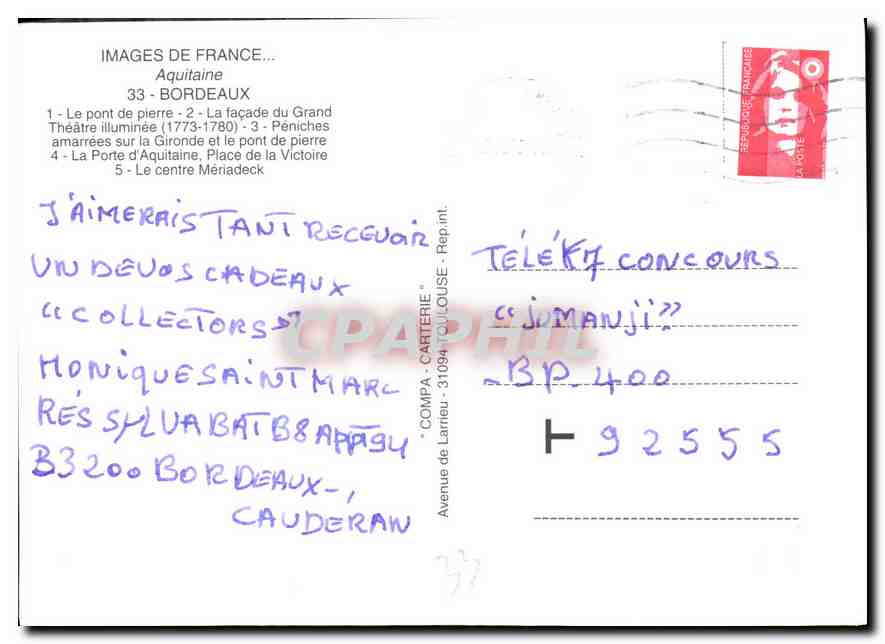 IMAGES DE FRANCE...
Aquitaine
33 - BORDEAUX
1 - Le pont de pierre - 2 - La façade du Grand
Théâtre illuminée (1773-1780) - 3 - Péniches
amarrées sur la Gironde et le pont de pierre
4 - La Porte d'Aquitaine, Place de la Victoire
5 - Le centre Mériadeck
J'AIMERAIS TANT RECEVOIR
UN DE VOS CADEAUX
"COLLECTORS"
MONIQUE SAINT MARC
RÉS SYLVA BAT B8 APP 94
33200 BORDEAUX-,
CAUDERAN
" COMPA - CARTERIE "
Avenue de Larrieu - 31094 TOULOUSE - Rep.int.
RÉPUBLIQUE FRANÇAISE
LA POSTE
TÉLÉ K7 CONCOURS
"JUMANJI"
- BP. 400
92555
CPAPHIL